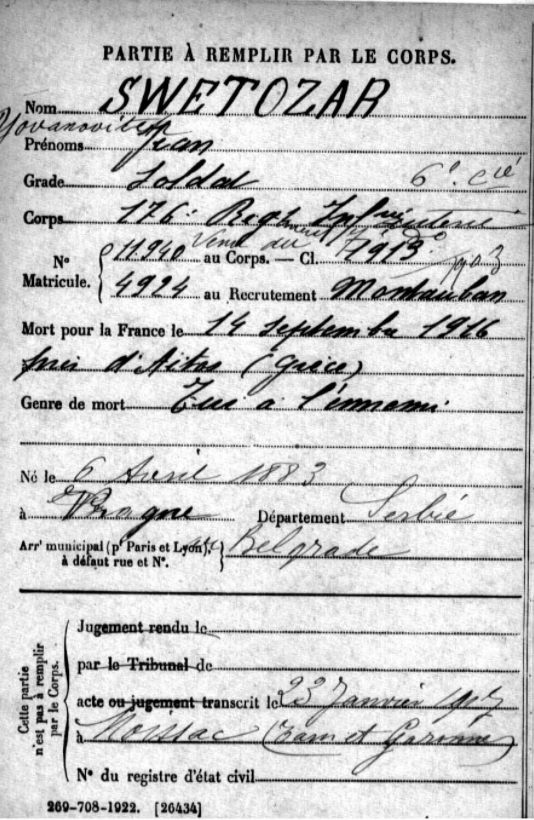 PARTIE À REMPLIR PAR LE CORPS.
Nom SWETOZAR
Yovanovitch
Prénoms Jean
Grade Soldat 6e Cie
Corps 176e Regt Infanterie
N° Matricule. { 11.940 au Corps. — Cl. 1913 1903
4924 au Recrutement Montauban
Mort pour la France le 14 septembre 1916
près d'Aitos (Grèce)
Genre de mort Tué à l'ennemi
Né le 6 Avril 1883
à Département Serbie
Arrt municipal (pr Paris et Lyon), à défaut rue et N°. } Belgrade
Cette partie n'est pas à remplir par le Corps.
Jugement rendu le
par le Tribunal de
acte ou jugement transcrit le 23 Janvier 1917
à Moissac (Tarn et Garonne)
N° du registre d'état civil
269-708-1922. [26434]